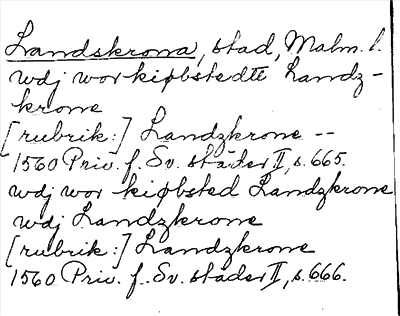 Landskrona, stad, Malm. l.
wdj wor kiøbstedtt Landz-
krone
[rubrik:] Landzkrone --
1560 Priv. f. Sv. städer II, s. 665.
wdj wor kiøbsted Landzkrone
wdj Landzkrone
[rubrik:] Landzkrone
1560 Priv. f. Sv. städer II, s. 666.